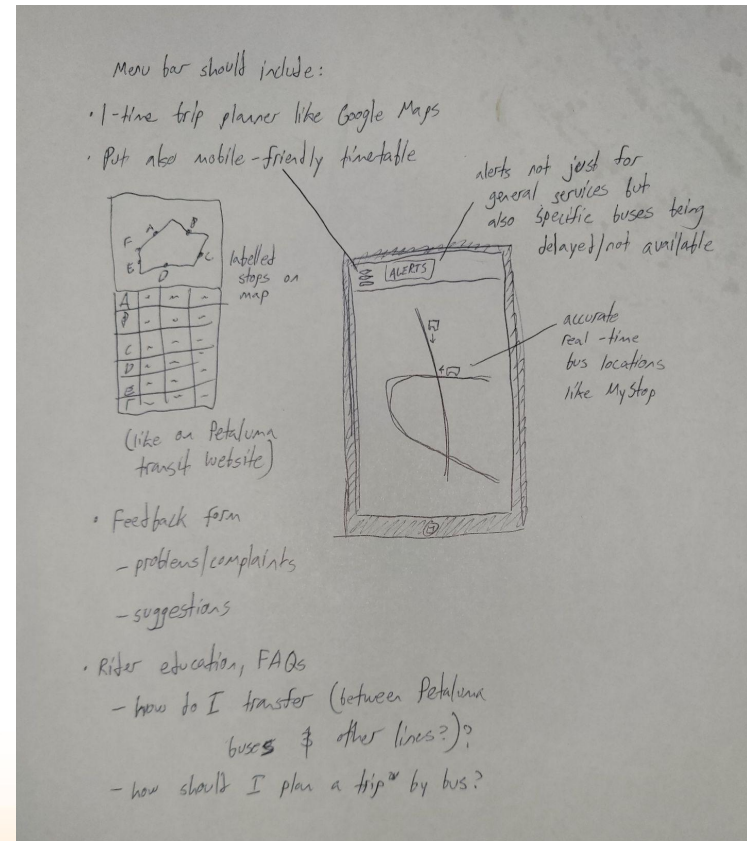 Menu bar should include:
• 1-time trip planner like Google Maps
• Put also mobile-friendly timetable
alerts not just for
general services but
also specific buses being
delayed/not available
A
B
C
D
E
F
labelled
stops on
map
A - - -
B - - -
C - - -
D - - -
E - - -
F - - -
(like on Petaluma
transit website)
ALERTS
accurate
real-time
bus locations
like MyStop
• Feedback form
- problems/complaints
- suggestions
• Rider education, FAQs
- how do I transfer (between Petaluma
buses & other lines?)?
- how should I plan a trip by bus?